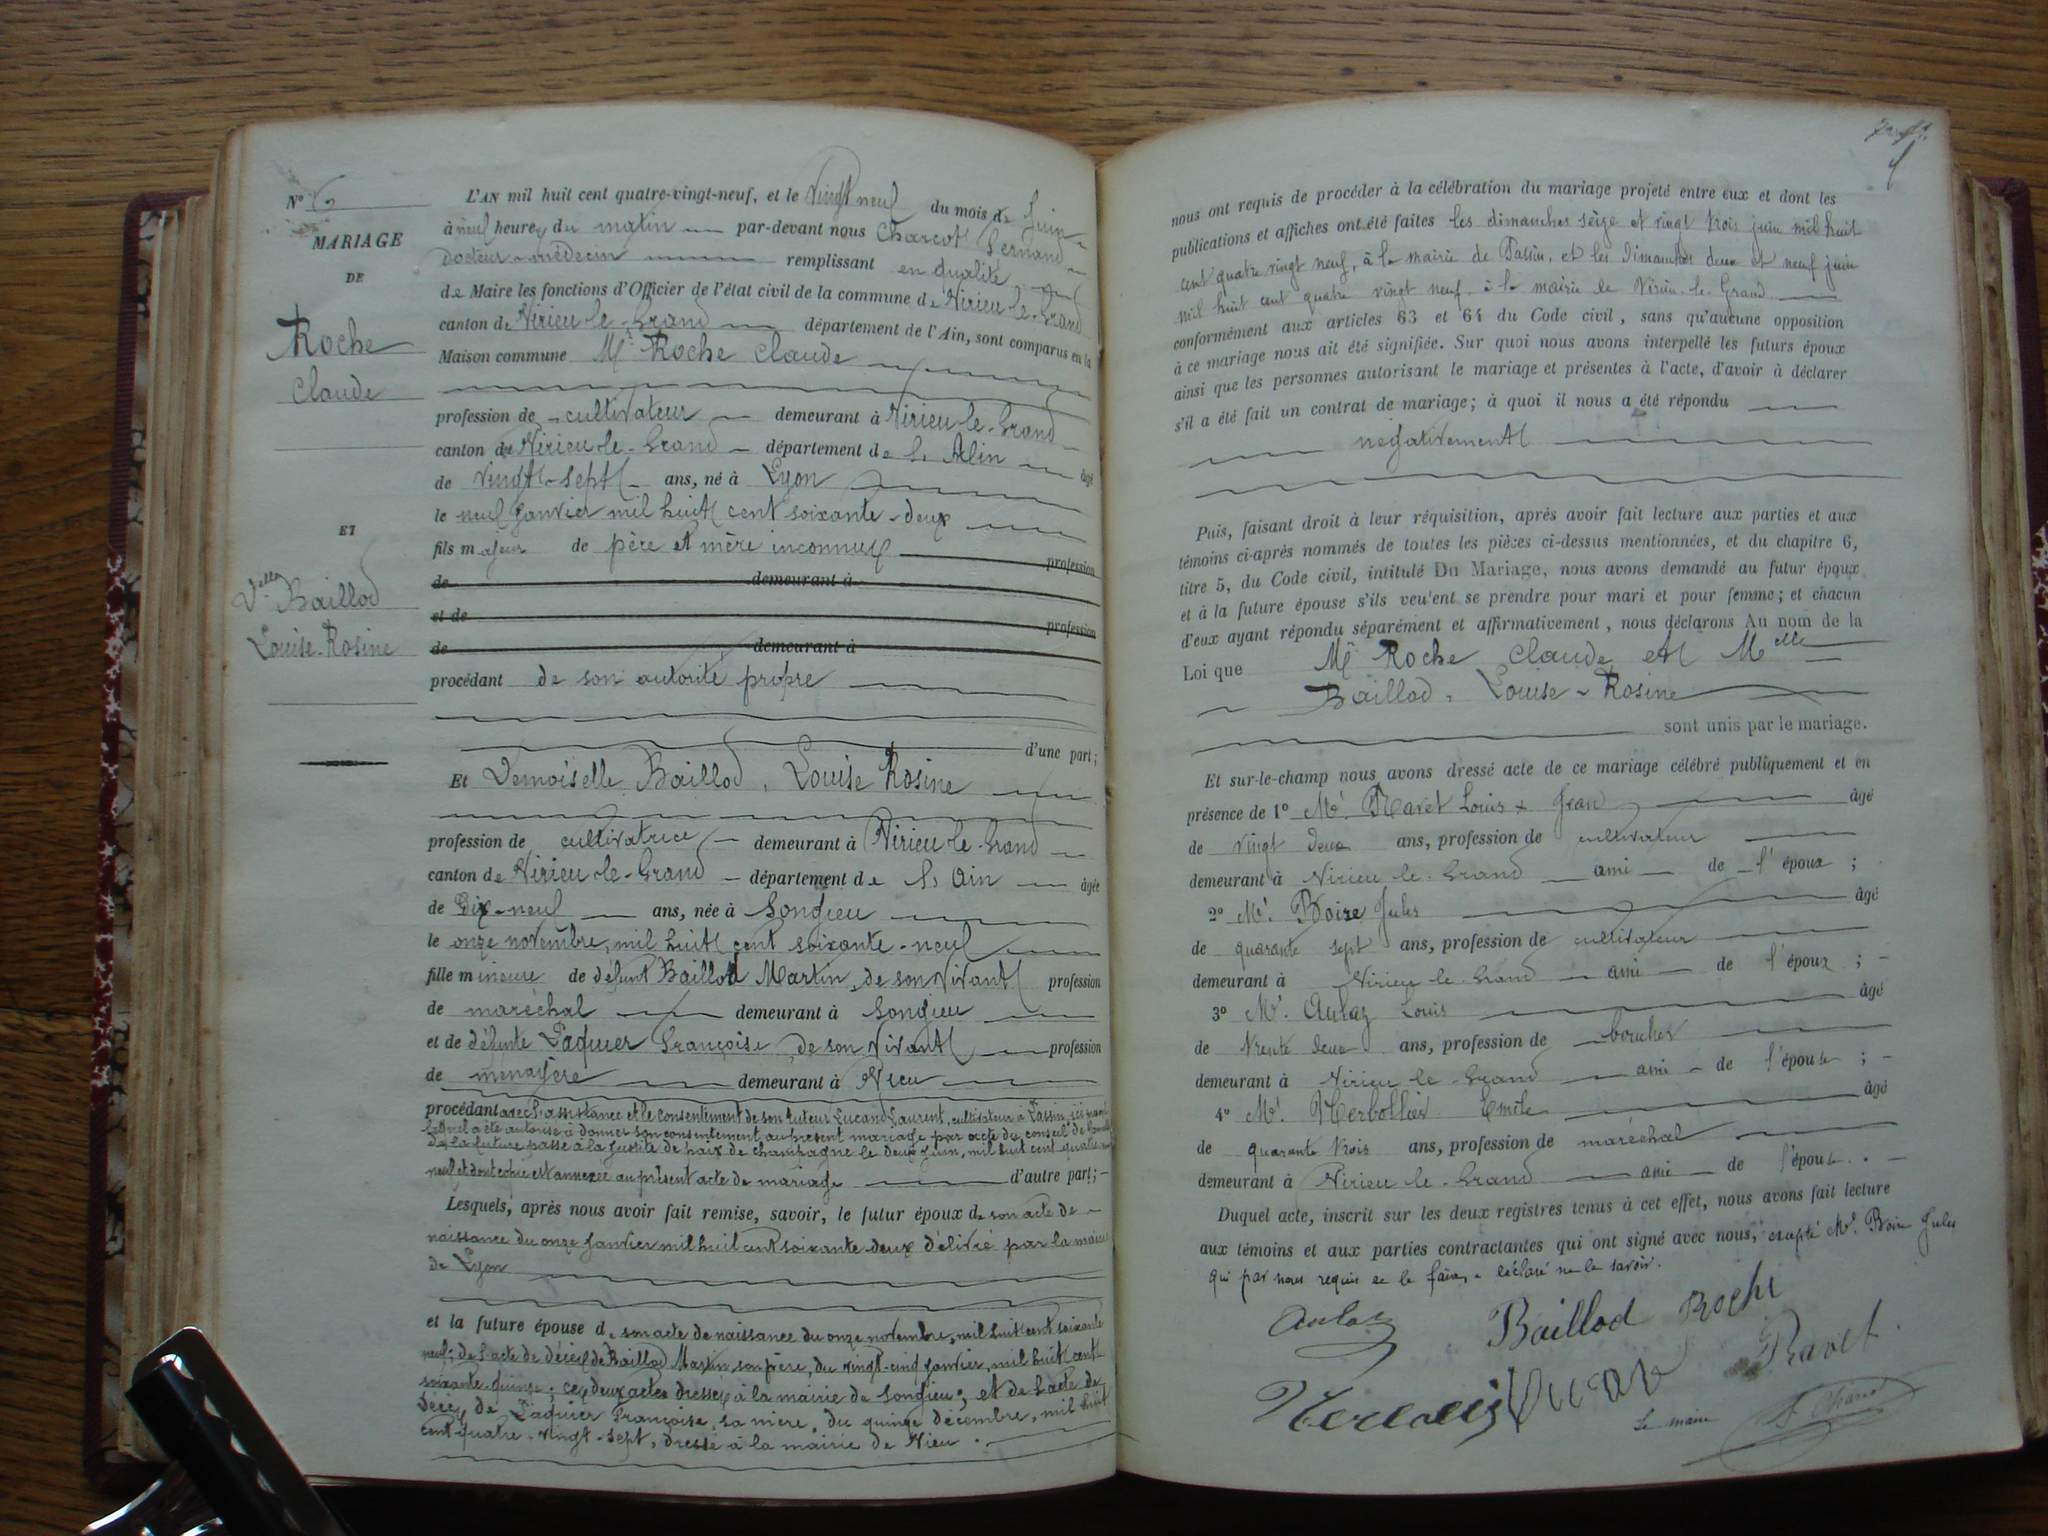 N° 6
MARIAGE
DE
Roche
Claude
ET
Delle Baillod
Louise-Rosine
L'AN mil huit cent quatre-vingt-neuf, et le Vingt neuf du mois de Juin
à neuf heures du matin par-devant nous Charcot Fernand
Docteur-médecin remplissant en qualité
de Maire les fonctions d'Officier de l'état civil de la commune de Virieu-le-Grand
canton de Virieu-le-Grand département de l'Ain, sont comparus en la
Maison commune Mr Roche Claude
profession de cultivateur demeurant à Virieu-le-Grand
canton de Virieu-le-Grand département de l'Ain âgé
de vingt-sept ans, né à Lyon
le neuf Janvier mil huit cent soixante-deux
fils majeur de père et mère inconnus profession
de demeurant à
et de profession
de demeurant à
procédant de son autorité propre
d'une part;
Et Demoiselle Baillod, Louise Rosine
profession de cultivatrice demeurant à Virieu-le-Grand
canton de Virieu-le-Grand département de l'Ain âgée
de Dix-neuf ans, née à Songieu
le onze novembre, mil huit cent soixante-neuf
fille mineure de défunt Baillod Martin, de son vivant profession
de maréchal demeurant à Songieu
et de défunte Paquier Françoise, de son vivant profession
de ménagère demeurant à Vieu
procédant avec l'assistance et le consentement de son tuteur Lucand Laurent, cultivateur à Passin, ici présent
lequel a été autorisé à donner son consentement au présent mariage par acte du conseil de famille
de la future passé à la justice de paix de Champagne le deux Juin, mil huit cent quatre vingt
neuf et dont copie est annexée au présent acte de mariage d'autre part;
Lesquels, après nous avoir fait remise, savoir, le futur époux de son acte de
naissance du onze Janvier mil huit cent soixante deux délivré par la mairie
de Lyon
et la future épouse de son acte de naissance du onze novembre, mil huit cent soixante
neuf; de l'acte de décès de Baillod Martin son père, du vingt-cinq Janvier, mil huit cent
soixante-quinze; ces deux actes dressés à la mairie de Songieu; et de l'acte de
décès de Paquier Françoise, sa mère, du quinze décembre, mil huit
cent quatre-vingt-sept, dressé à la mairie de Vieu.
nous ont requis de procéder à la célébration du mariage projeté entre eux et dont les
publications et affiches ont été faites les dimanches seize et vingt trois juin mil huit
cent quatre vingt neuf, à la mairie de Passin, et les dimanches deux et neuf juin
mil huit cent quatre vingt neuf à la mairie de Virieu-le-Grand
conformément aux articles 63 et 64 du Code civil, sans qu'aucune opposition
à ce mariage nous ait été signifiée. Sur quoi nous avons interpellé les futurs époux
ainsi que les personnes autorisant le mariage et présentes à l'acte, d'avoir à déclarer
s'il a été fait un contrat de mariage; à quoi il nous a été répondu
négativement
Puis, faisant droit à leur réquisition, après avoir fait lecture aux parties et aux
témoins ci-après nommés de toutes les pièces ci-dessus mentionnées, et du chapitre 6,
titre 5, du Code civil, intitulé Du Mariage, nous avons demandé au futur époux
et à la future épouse s'ils veulent se prendre pour mari et pour femme; et chacun
d'eux ayant répondu séparément et affirmativement, nous déclarons Au nom de la
Loi que Mr Roche Claude et Melle
Baillod, Louise-Rosine
sont unis par le mariage.
Et sur-le-champ nous avons dressé acte de ce mariage célébré publiquement et en
présence de 1° Mr. Ravet Louis Jean âgé
de vingt deux ans, profession de cultivateur
demeurant à Virieu-le-Grand ami de l'époux;
2° Mr. Boire Jules âgé
de quarante sept ans, profession de cultivateur
demeurant à Virieu-le-Grand ami de l'époux;
3° Mr. Aulaz Louis âgé
de trente deux ans, profession de boucher
demeurant à Virieu-le-Grand ami de l'épouse;
4° Mr. Emile âgé
de quarante trois ans, profession de maréchal
demeurant à Virieu-le-Grand ami de l'épouse.
Duquel acte, inscrit sur les deux registres tenus à cet effet, nous avons fait lecture
aux témoins et aux parties contractantes qui ont signé avec nous, excepté Mr. Boire Jules
qui par nous requis de le faire, a déclaré ne le savoir.
Aulaz Baillod Roche
Lucand Ravet
Le maire F. Charcot